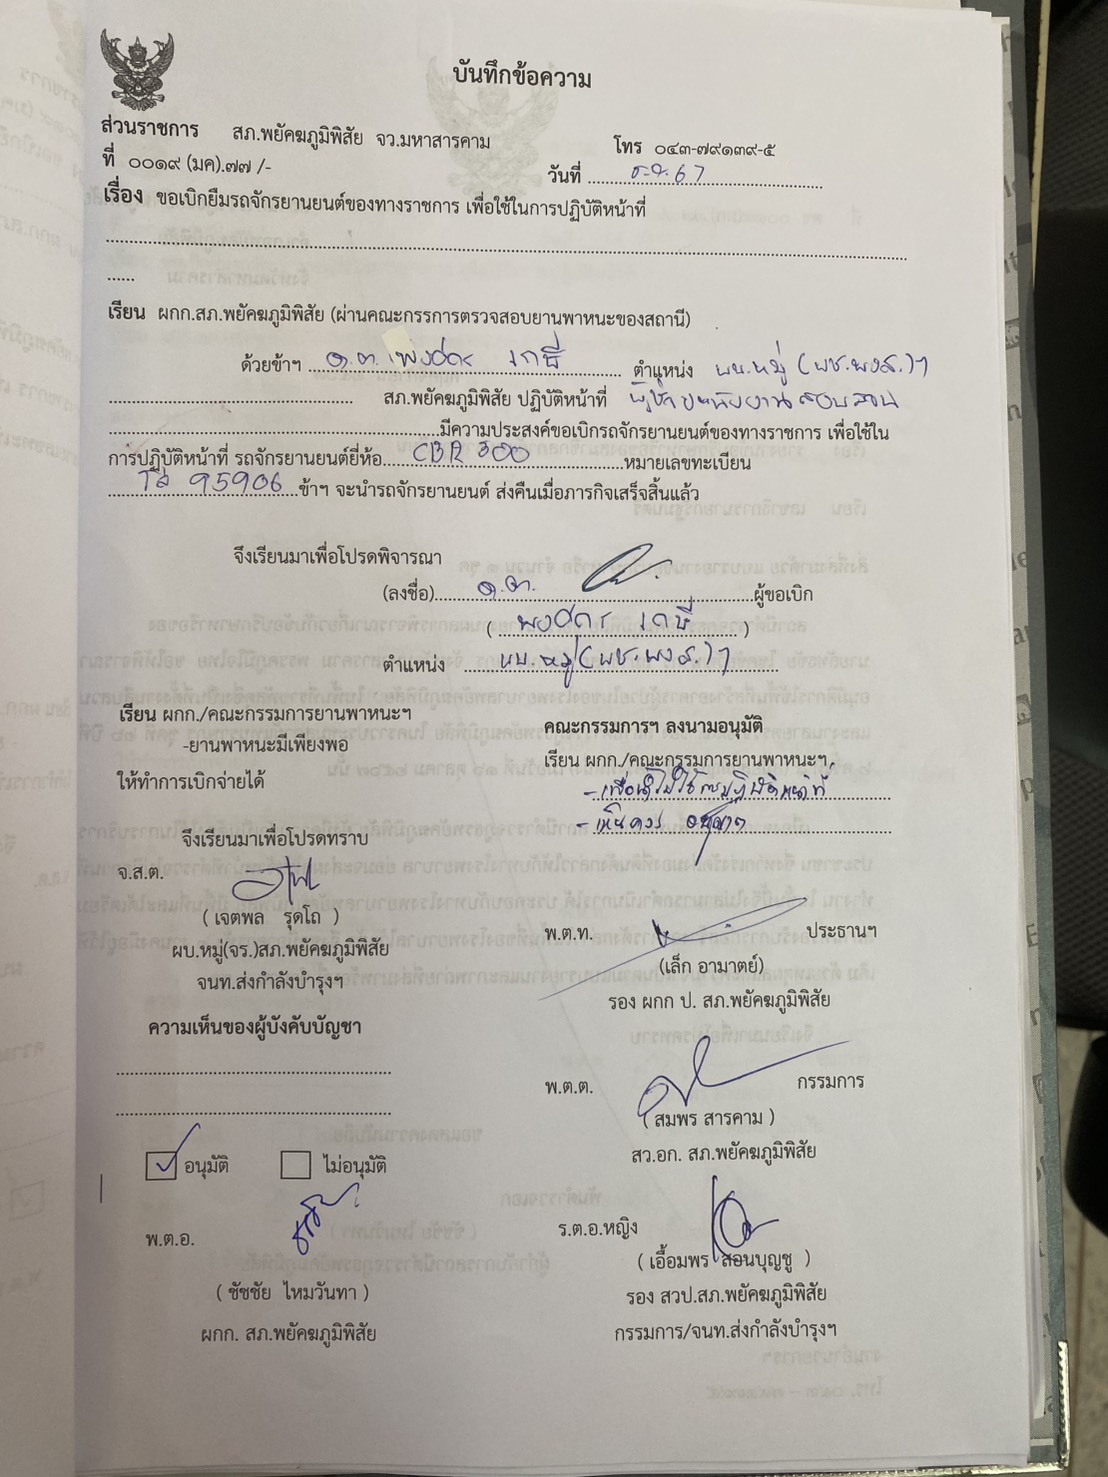 บันทึกข้อความ
ส่วนราชการ สภ.พยัคฆภูมิพิสัย จว.มหาสารคาม โทร ๐๔๓-๗๙๑๓๙-๕
ที่ ๐๐๑๙ (มค).๗๗ /- วันที่ ธ.ค. 67
เรื่อง ขอเบิกยืมรถจักรยานยนต์ของทางราชการ เพื่อใช้ในการปฏิบัติหน้าที่
เรียน ผกก.สภ.พยัคฆภูมิพิสัย (ผ่านคณะกรรการตรวจสอบยานพาหนะของสถานี)
ด้วยข้าฯ ด.ต. เกษี ตำแหน่ง ผบ.หมู่ (ผช.พงส.)ฯ
สภ.พยัคฆภูมิพิสัย ปฏิบัติหน้าที่ ผู้ช่วยพนักงานสอบสวน
มีความประสงค์ขอเบิกรถจักรยานยนต์ของทางราชการ เพื่อใช้ใน
การปฏิบัติหน้าที่ รถจักรยานยนต์ยี่ห้อ CBR 300 หมายเลขทะเบียน
โล่ 95906 ข้าฯ จะนำรถจักรยานยนต์ ส่งคืนเมื่อภารกิจเสร็จสิ้นแล้ว
จึงเรียนมาเพื่อโปรดพิจารณา
(ลงชื่อ) ด.ต. ผู้ขอเบิก
( เกษี )
ตำแหน่ง ผบ.หมู่(ผช.พงส.)ฯ
เรียน ผกก./คณะกรรมการยานพาหนะฯ
-ยานพาหนะมีเพียงพอ
ให้ทำการเบิกจ่ายได้
จึงเรียนมาเพื่อโปรดทราบ
จ.ส.ต.
( เจตพล รุดโถ )
ผบ.หมู่(จร.)สภ.พยัคฆภูมิพิสัย
จนท.ส่งกำลังบำรุงฯ
ความเห็นของผู้บังคับบัญชา
อนุมัติ ไม่อนุมัติ
พ.ต.อ.
( ชัชชัย ไหมวันทา )
ผกก. สภ.พยัคฆภูมิพิสัย
คณะกรรมการฯ ลงนามอนุมัติ
เรียน ผกก./คณะกรรมการยานพาหนะฯ
- เพื่อนำไปใช้ปฏิบัติหน้าที่
- เห็นควร อนุญาต
พ.ต.ท. ประธานฯ
(เล็ก อามาตย์)
รอง ผกก ป. สภ.พยัคฆภูมิพิสัย
พ.ต.ต. กรรมการ
( สมพร สารคาม )
สว.อก. สภ.พยัคฆภูมิพิสัย
ร.ต.อ.หญิง
( เอื้อมพร สอนบุญชู )
รอง สวป.สภ.พยัคฆภูมิพิสัย
กรรมการ/จนท.ส่งกำลังบำรุงฯ